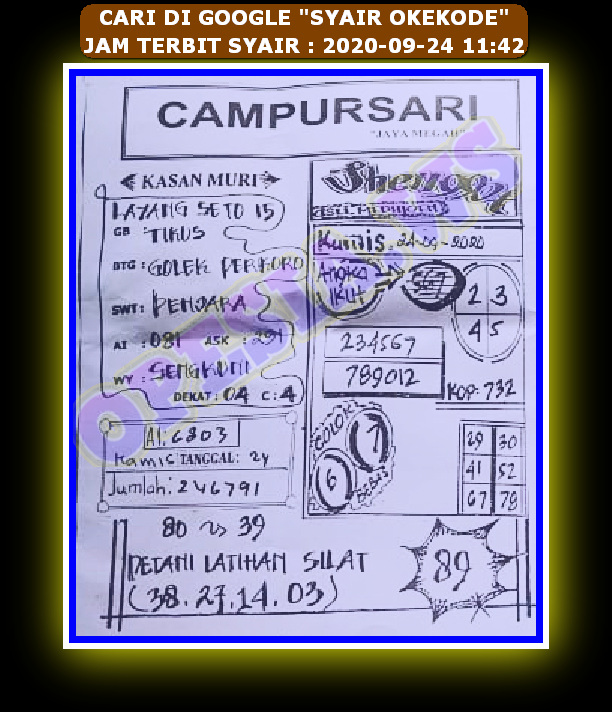 CARI DI GOOGLE "SYAIR OKEKODE"
JAM TERBIT SYAIR : 2020-09-24 11:42
CAMPURSARI
"JAYA MEGAH"
KASAN MURI
LAYANG SETO 15
GB : TIKUS
BTG : GOLEK PERKORO
SWT : PENJARA
AI : 081 ASK : 291
WY : SENGKUNI
DEKAT : 04 C : 4
AI : 6803
Kamis TANGGAL : 24
Jumlah : 246791
Kamis. 24-09-2020
Angka
IKUT
567
2 3
4 5
234567
789012
KOP : 732
COLOK
7
6
BEBAS
29 30
41 52
67 78
80 vs 39
PETANI LATIHAN SILAT
(38.27.14.03)
89